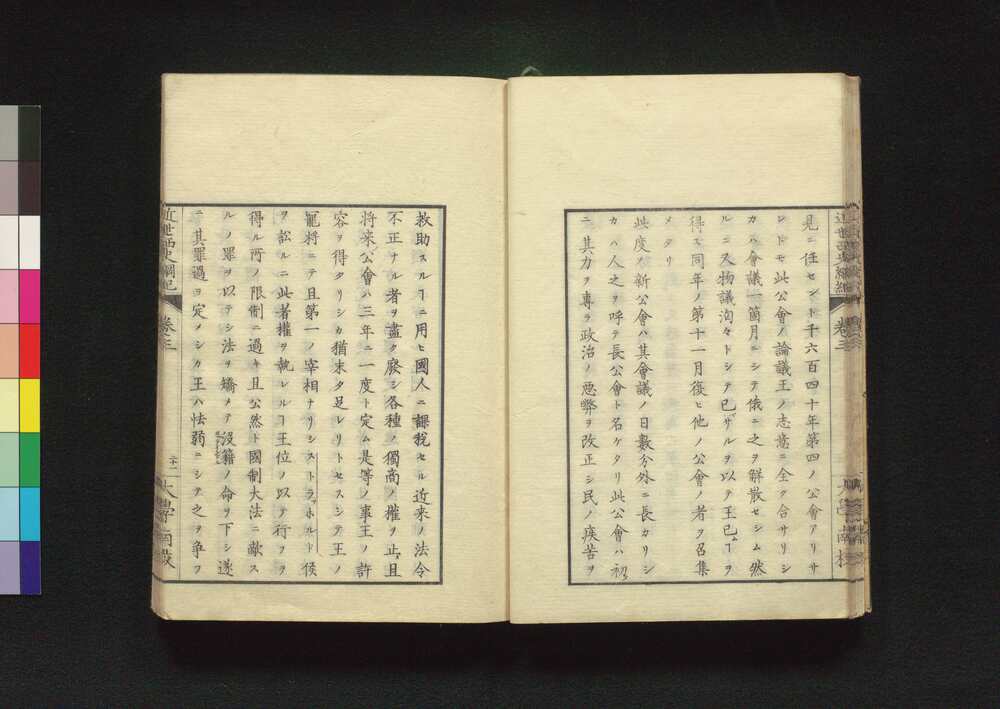 見ニ任セント千六百四十年第四ノ公會アリサ
レトモ此公會ノ論議王ノ志意ニ全ク合サリシ
カハ會議一箇月ニシテ俄ニ之ヲ解散セシム然
ルニ又物議洶々トシテ已サルヲ以テ王已ムヿヲ
得ス同年ノ第十一月復ヒ他ノ公會ノ者ヲ召集
メタリ
此度ノ新公會ハ其會議ノ日數分外ニ長カリシ
カハ人之ヲ呼テ長公會ト名ケタリ此公會ハ初
ニ其力ヲ專ラ政治ノ惡弊ヲ改正シ民ノ疾苦ヲ
救助スルヿニ用ヒ國人ニ課税セル近來ノ法令
不正ナル者ヲ盡ク廢シ各種ノ獨商ノ權ヲ止且
将来公會ハ三年ニ一度ト定ム是等ノ事王ノ許
容ヲ得タリシカ猶未タ足レリトセスシテ王ノ
寵将ニテ且第一ノ宰相ナリシストラッホルド候
ヲ訟ルニ此者權ヲ執レルヿ王位ノ以テ行フヲ
得ル所ノ限制ニ過キ且公然ト國制大法ニ敵ス
ルノ罪ヲ以テシ法ヲ矯メテ没籍ノ命ヲ下シ遂
ニ其罪過ヲ定メシカ王ハ怯弱ニシテ之ヲ争フ
近世西史綱紀 卷三 二十二 大學南校